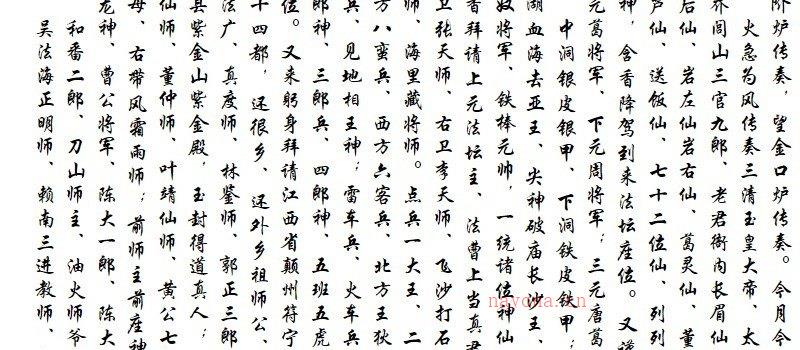 阶炉传奏，望金口炉传奏。今月今
火急为风传奏三清玉皇大帝、太
界闾山三官九郎、老君衙内长眉仙
后仙、岩左仙岩右仙、葛灵仙、董
芦仙、送饭仙、七十二位仙、列列
神，含香降驾到来法坛座位。又
元葛将军、下元周将军；三元唐葛
中洞银皮银甲、下洞铁皮铁甲；
湖血海去亚王、尖神破庙长沙王、
奴将军、铁棒元帅，一统诸位神仙
香拜请上元法坛主、法曹上当真君
卫张天师、右卫李天师、飞沙打石
师、海里藏将师。点兵一大王、二
方八蛮兵、西方六客兵、北方王狄
兵、见地相王神；雷车兵、火车兵
郎神、三郎兵、四郎神、五班五虎
位。又来躬身拜请江西省颠州符宁
十四都，还很乡、还外乡祖师公、
法广、真度师、林鉴师、郭正三郎
县紫金山紫金殿，玉封得道真人；
仙师、董仲师、叶靖仙师、黄公七
母、右带风霜雨师；前师主前座神
龙神、曹公将军、陈大一郎、陈大
和番二郎、刀山师主、油火师爷
吴法海正明师、赖南三进教师、
nayona.cn